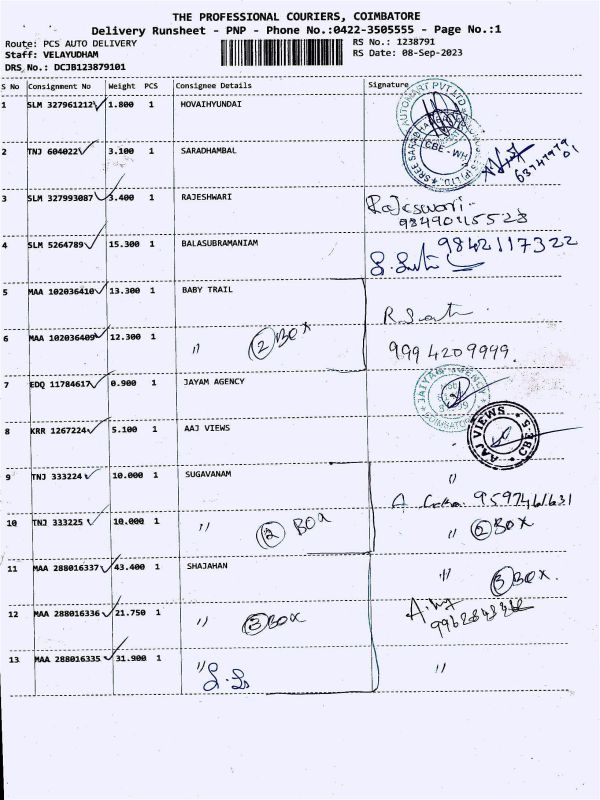 THE PROFESSIONAL COURIERS, COIMBATORE
Delivery Runsheet - PNP - Phone No.:0422-3505555 - Page No.:1
Route: PCS AUTO DELIVERY RS No.: 1238791
Staff: VELAYUDHAM RS Date: 08-Sep-2023
DRS No.: DCJB123879101
S No Consignment No Weight PCS Consignee Details Signature
1 SLM 327961212 1.800 1 HOVAIHYUNDAI
AUTOMART PVT LTD
CBE - WH
2 TNJ 604022 3.100 1 SARADHAMBAL
3 SLM 327993087 3.400 1 RAJESHWARI
Rajeswari
4 SLM 5264789 15.300 1 BALASUBRAMANIAM 9842117322
5 MAA 102036410 13.300 1 BABY TRAIL
6 MAA 102036409 12.300 1 " 2 BOX 9994209999.
7 EDQ 11784617 0.900 1 JAYAM AGENCY
JAIYAM AGENCY
COIMBATORE
8 KRR 1267224 5.100 1 AAJ VIEWS
AAJ VIEWS CBE-
9 TNJ 333224 10.000 1 SUGAVANAM "
9597461631
10 TNJ 333225 10.000 1 " 2 BOX " 2 BOX
11 MAA 288016337 43.400 1 SHAJAHAN " 3 BOX.
12 MAA 288016336 21.750 1 " 3 BOX
13 MAA 288016335 31.900 1 " "